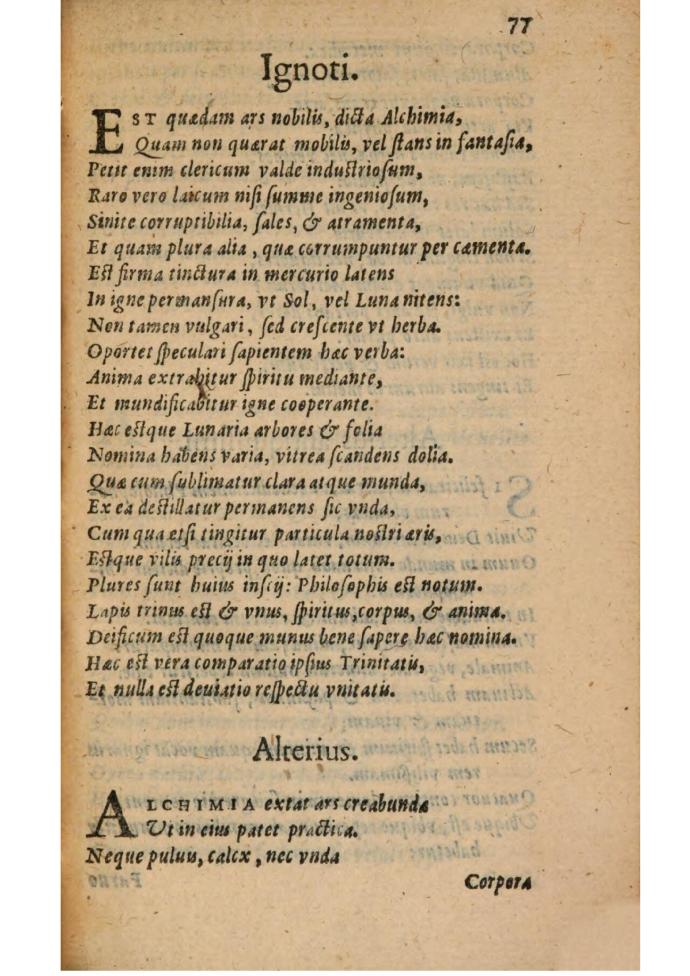 77
Ignoti.
EST quædam ars nobilis, dicta Alchimia,
Quam non quærat mobilis, vel ſtans in fantaſia,
Petit enim clericum valde induſtrioſum,
Raro vero laicum niſi ſumme ingenioſum,
Sinite corruptibilia, ſales, & atramenta,
Et quam plura alia, quæ corrumpuntur per cæmenta.
Eſt firma tinctura in mercurio latens
In igne permanſura, vt Sol, vel Luna nitens:
Non tamen vulgari, ſed creſcente vt herba.
Oportet ſpeculari ſapientem hæc verba:
Anima extrahitur ſpiritu mediante,
Et mundificabitur igne cooperante.
Hæc eſtque Lunaria arbores & folia
Nomina habens varia, vitrea ſcandens dolia.
Quæ cum ſublimatur clara atque munda,
Ex ea deſtillatur permanens ſic vnda,
Cum qua etſi tingitur particula noſtri æris,
Eſtque vilis precij in quo latet totum.
Plures ſunt huius inſcij: Philoſophis eſt notum.
Lapis trinus eſt & vnus, ſpiritus, corpus, & anima.
Deificum eſt quoque munus bene ſapere hæc nomina.
Hæc eſt vera comparatio ipſius Trinitatis,
Et nulla eſt deuiatio reſpectu vnitatis.
Alterius.
ALCHIMIA extat ars creabunda
Vt in eius patet practica.
Neque puluis, calcx, nec vnda
Corpora